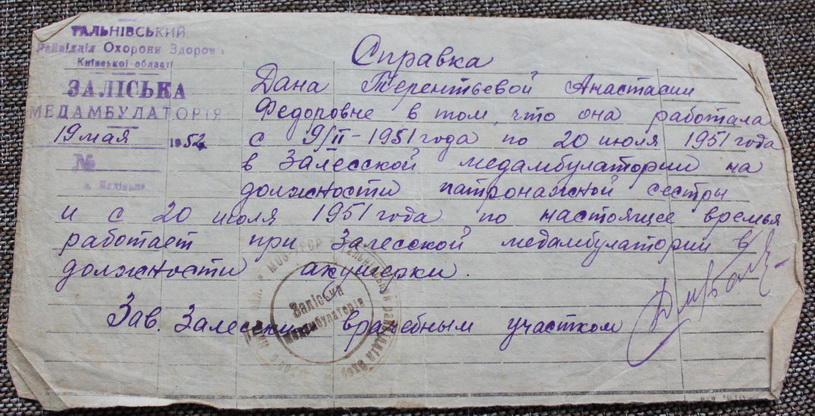 ТАЛЬНІВСЬКИЙ
Райвідділ Охорони Здоров
Київської області
ЗАЛІСЬКА
МЕДАМБУЛАТОРІЯ
19 мая 1952
№
Справка
Дана Терентьевой Анастасии
Федоровне в том, что она работала
с 9/II-1951 года по 20 июля 1951 года
в Залесской медамбулатории на
должности патронажной сестры
и с 20 июля 1951 года по настоящее время
работает при Залесской медамбулатории в
должности акушерки.
Зав. Залесским врачебным участком
Заліська
Медамбулаторія